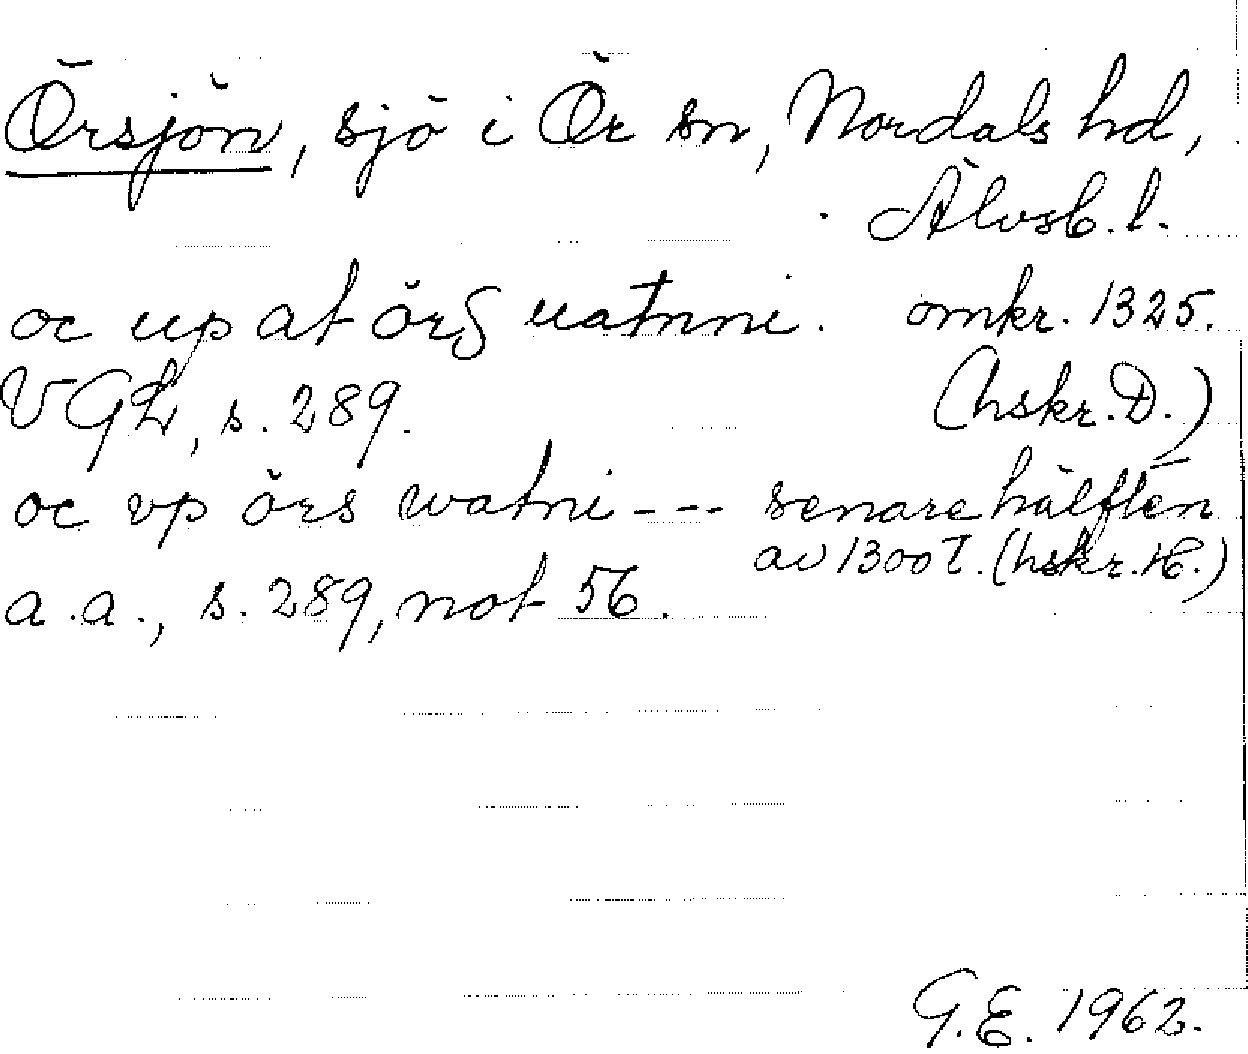 Örsjön, sjö i Ör sn, Nordals hd,
Älvsb. l.
oc up at örß uatnni. omkr. 1325.
VGL, s. 289. (hskr. D.)
oc vp örs watni --- senare hälften
av 1300 t. (hskr. H.)
a.a., s. 289, not 56.
G.E. 1962.